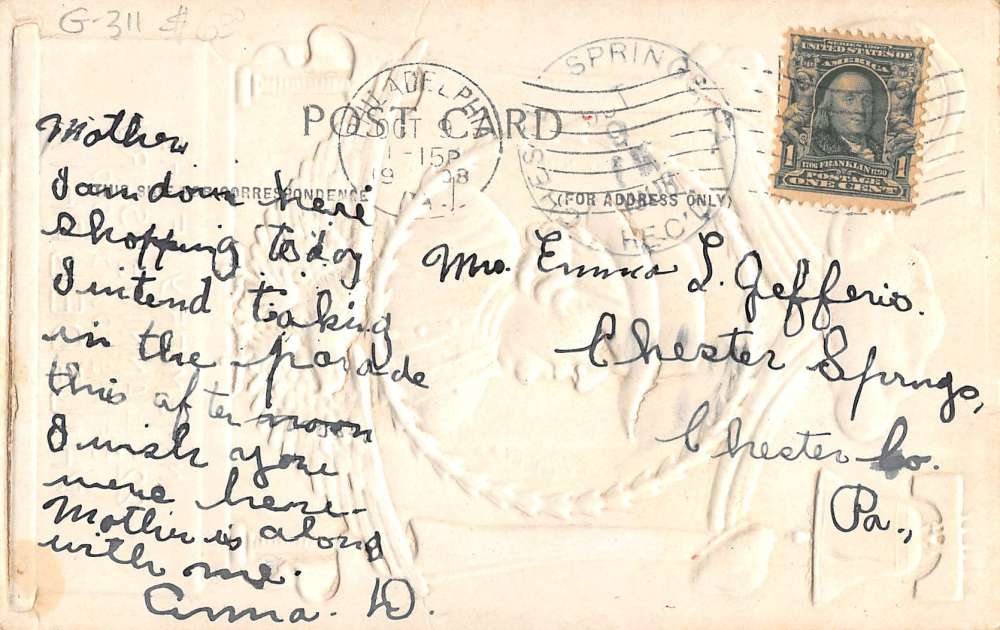 G-311 $6
POST CARD
PHILADELPHIA
OCT 9
1-15P
1908
PA.
CHESTER SPRINGS
REC'D
SERIES 1902
UNITED STATES OF
AMERICA
1 1706 FRANKLIN 1790 1
POSTAGE
ONE CENT
CORRESPONDENCE
(FOR ADDRESS ONLY)
Mother,
I am down here
shopping today
I intend taking
in the parade
this afternoon
I wish you
were here-
Mother is along
with me.
Anna. D.
Mrs. Emma L. Jefferis.
Chester Springs,
Chester Co.
Pa.,